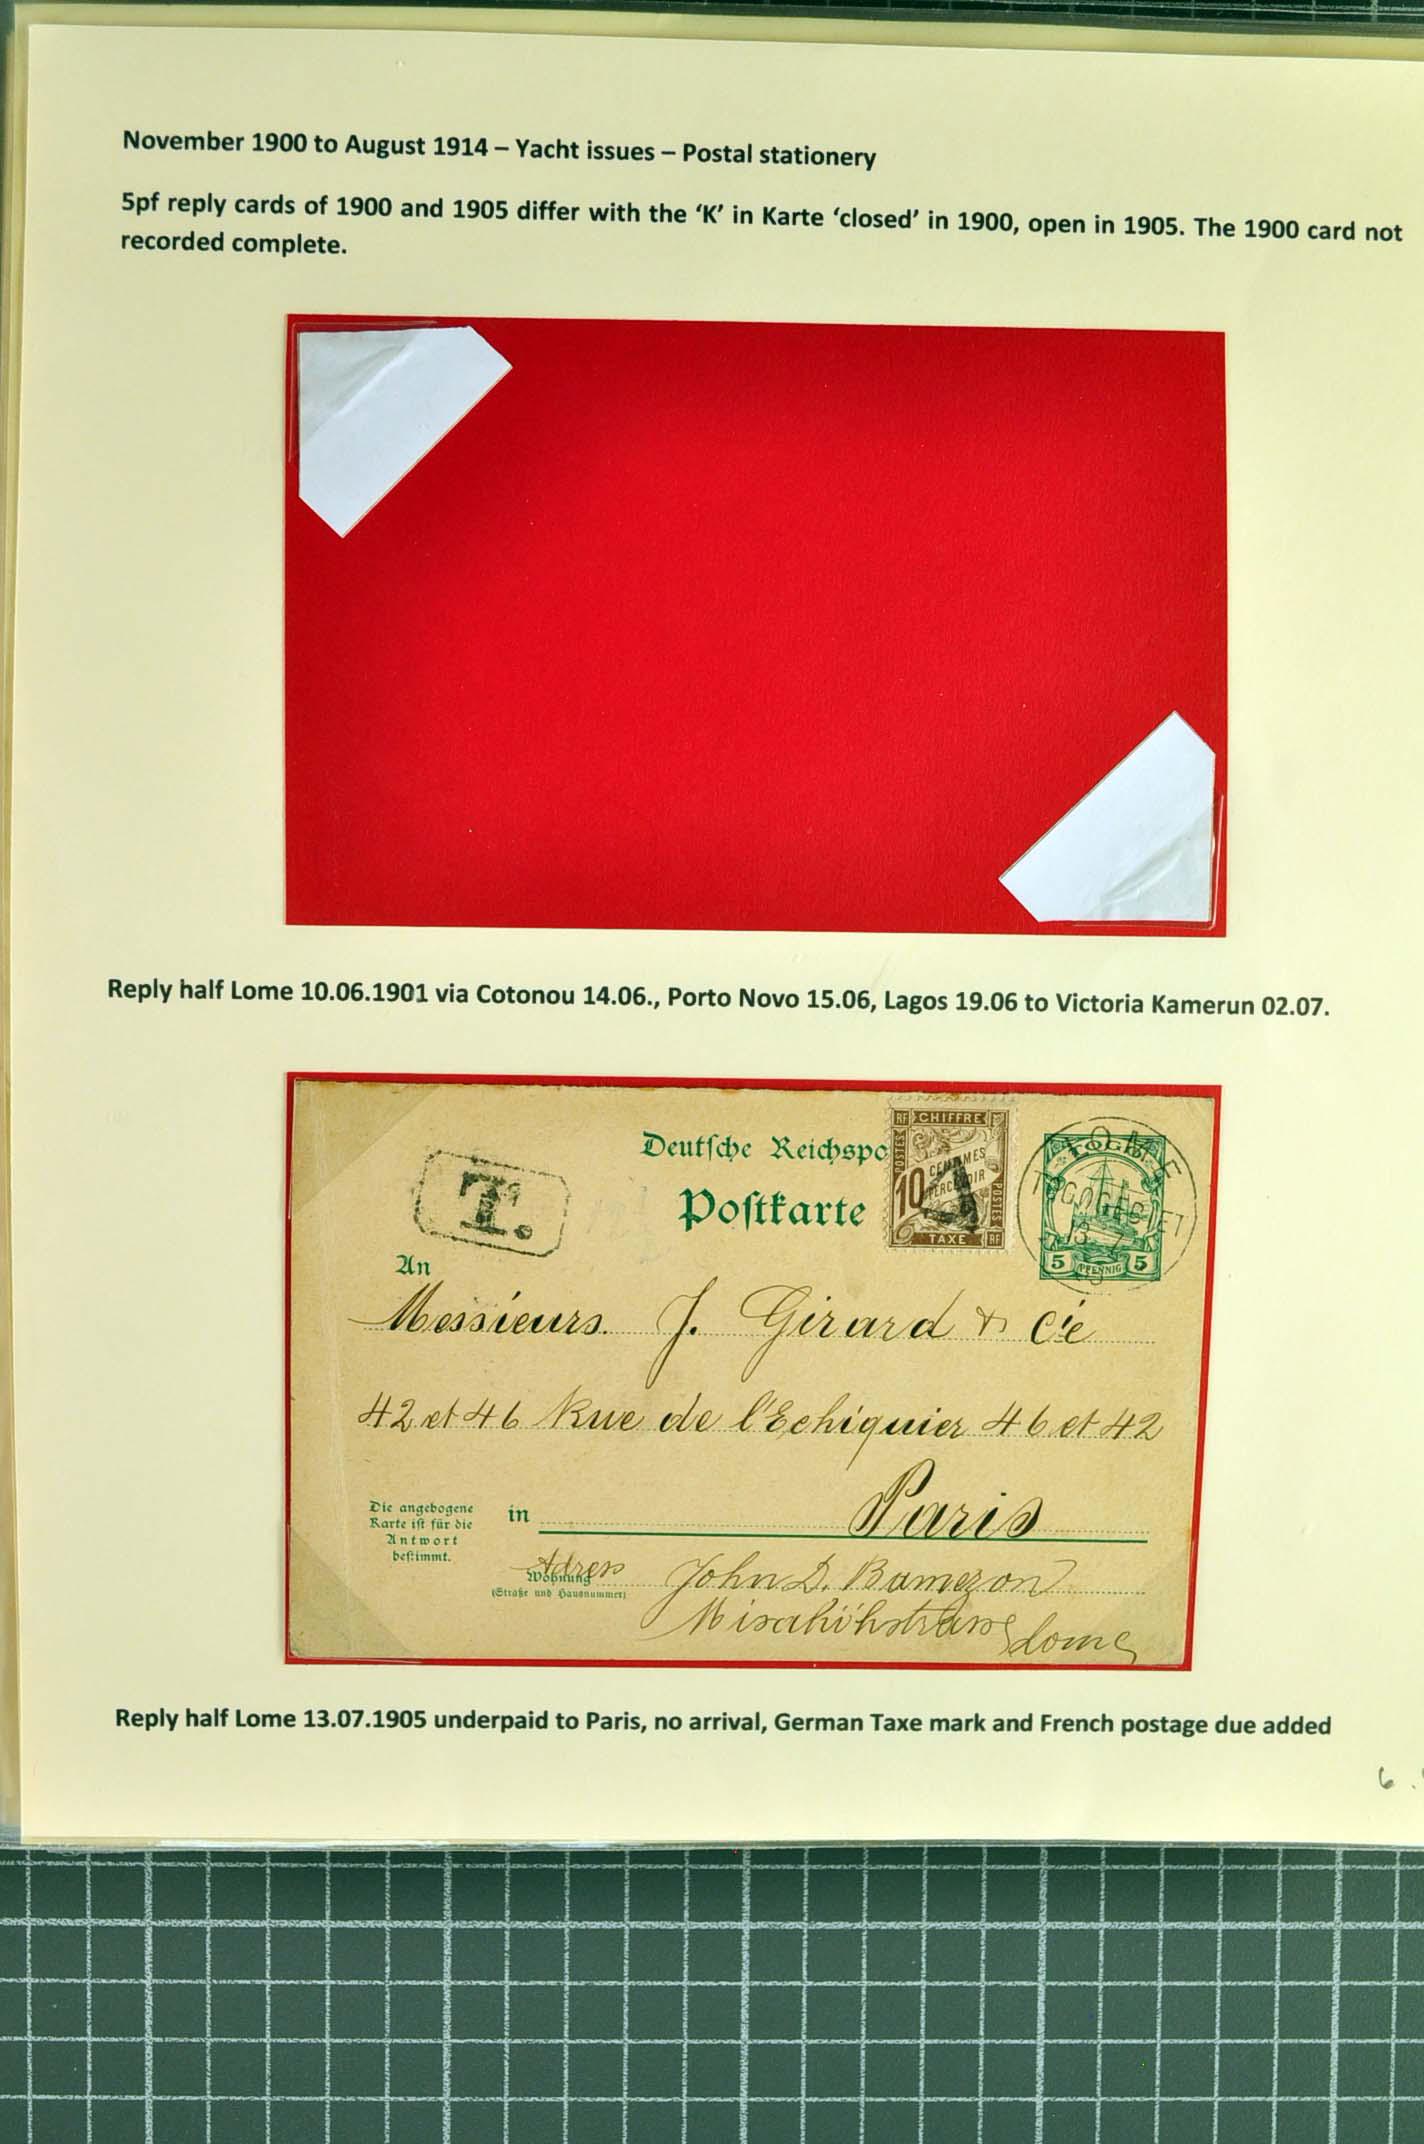 November 1900 to August 1914 – Yacht issues – Postal stationery
5pf reply cards of 1900 and 1905 differ with the ‘K’ in Karte ‘closed’ in 1900, open in 1905. The 1900 card not
recorded complete.
Reply half Lome 10.06.1901 via Cotonou 14.06., Porto Novo 15.06, Lagos 19.06 to Victoria Kamerun 02.07.
Deutsche Reichspo
Postkarte
T.
RF CHIFFRE
POSTES
10 CENTIMES
PERCEVOIR
POSTES
TAXE RF
TOGO
5 PFENNIG 5
LOME
TOGOGEBIET
13 7
An
Messieurs. J. Girard & Cie
42 et 46 Rue de l'Echiquier 46 et 42
in Paris
Die angebogene
Karte ist für die
Antwort
bestimmt.
Adress
Wohnung
(Straße und Hausnummer)
John D. Bamezon
Misahöhstrasse Lome
Reply half Lome 13.07.1905 underpaid to Paris, no arrival, German Taxe mark and French postage due added
6.